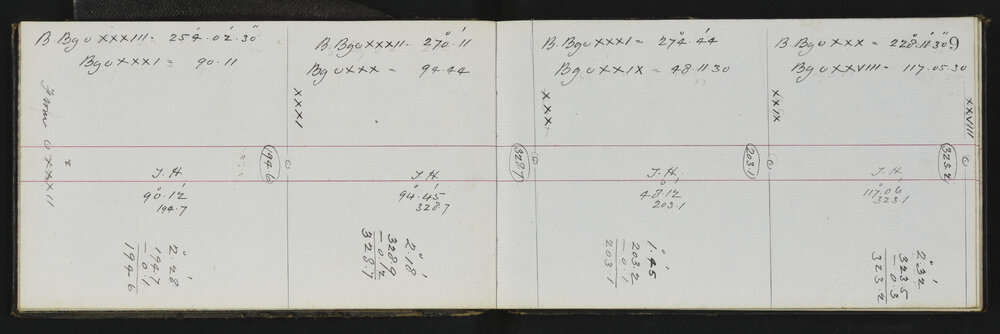 B. Bg ⊙ XXXIII = 254° 02' 30"
Bg ⊙ XXXI = 90.11
From ⊙ XXXII
194.6
T.H.
90° 12'
194.7
2° 28'
194.7
– 0.1
194.6
B. Bg ⊙ XXXII = 270° 11'
Bg ⊙ XXX = 94.44
XXXI
328.7
T.H.
94° 45'
328.7
2° 18'
328.9
– 0.12
328.7
B. Bg ⊙ XXXI = 274° 44'
Bg ⊙ XXIX = 48.11.30
XXX
203.1
T.H.
48° 12'
203.1
1° 45'
203.2
– 0.1
203.1
9
B. Bg ⊙ XXX = 228° 11' 30"
Bg ⊙ XXVIII = 117.05.30
XXIX
XXVIII
323.2
T.H.
117° 06'
323.1
2° 32'
323.5
– 0.3
323.2